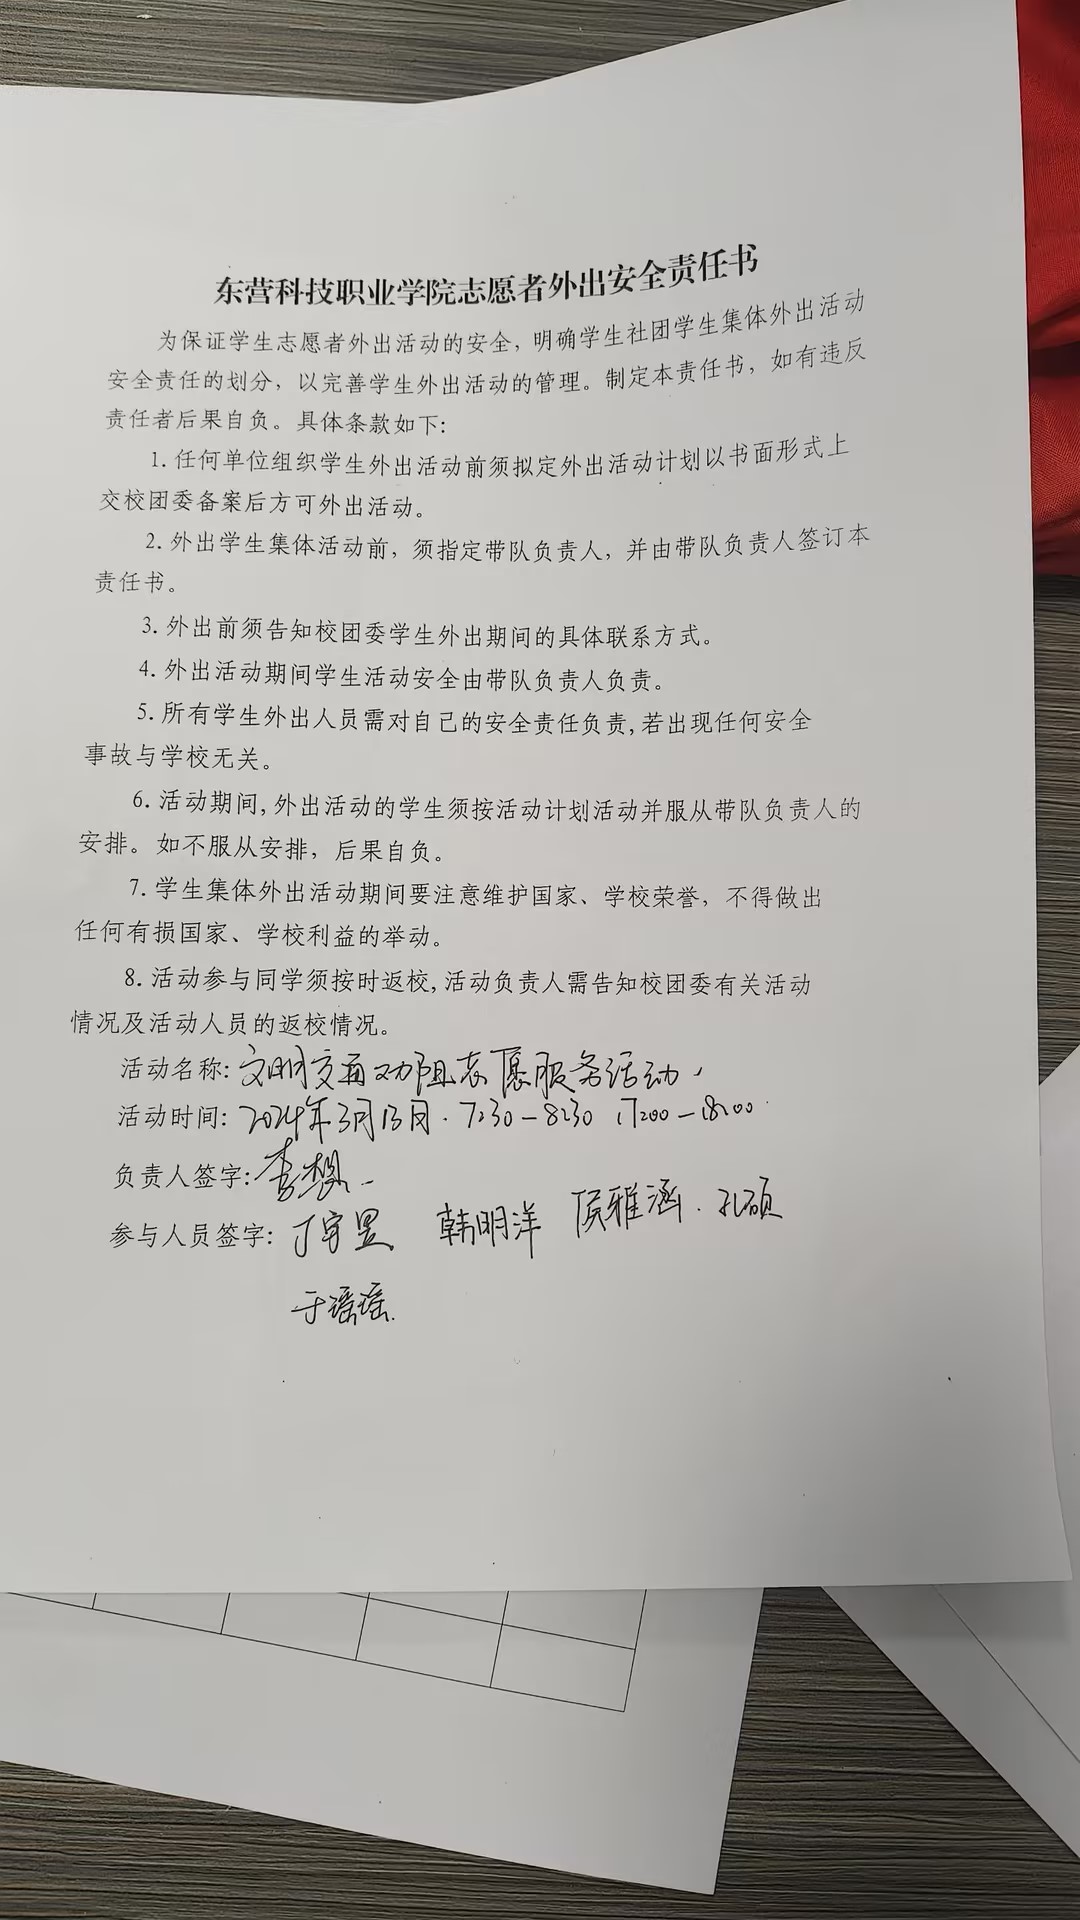 东营科技职业学院志愿者外出安全责任书
为保证学生志愿者外出活动的安全，明确学生社团学生集体外出活动
安全责任的划分，以完善学生外出活动的管理。制定本责任书，如有违反
责任者后果自负。具体条款如下:
1. 任何单位组织学生外出活动前须拟定外出活动计划以书面形式上
交校团委备案后方可外出活动。
2. 外出学生集体活动前，须指定带队负责人，并由带队负责人签订本
责任书。
3. 外出前须告知校团委学生外出期间的具体联系方式。
4. 外出活动期间学生活动安全由带队负责人负责。
5. 所有学生外出人员需对自己的安全责任负责,若出现任何安全
事故与学校无关。
6. 活动期间,外出活动的学生须按活动计划活动并服从带队负责人的
安排。如不服从安排，后果自负。
7. 学生集体外出活动期间要注意维护国家、学校荣誉，不得做出
任何有损国家、学校利益的举动。
8. 活动参与同学须按时返校,活动负责人需告知校团委有关活动
情况及活动人员的返校情况。
活动名称: 文明交通劝阻志愿服务活动
活动时间: 2024年3月13日. 7:30-8:30 17:00-18:00
负责人签字: 李想
参与人员签字: 丁宇昱 韩明洋 侯雅涵 孔硕
于瑶瑶